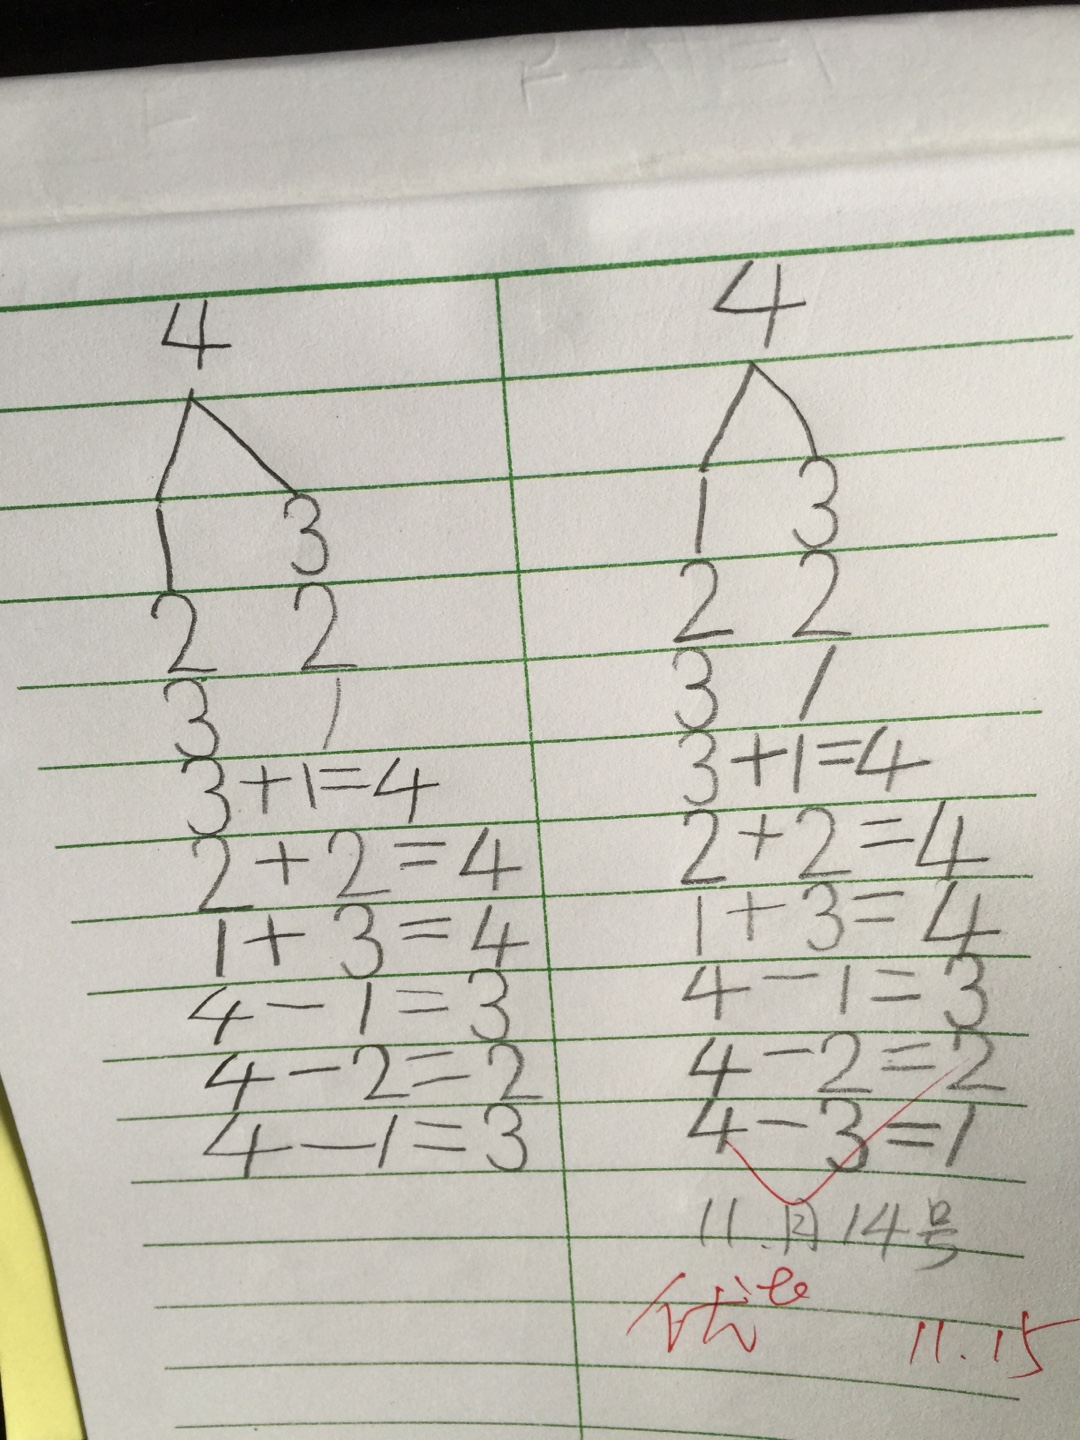 4
1 3
2 2
3 1
3+1=4
2+2=4
1+3=4
4-1=3
4-2=2
4-1=3
4
1 3
2 2
3 1
3+1=4
2+2=4
1+3=4
4-1=3
4-2=2
4-3=1
11.月14号
优
11.15